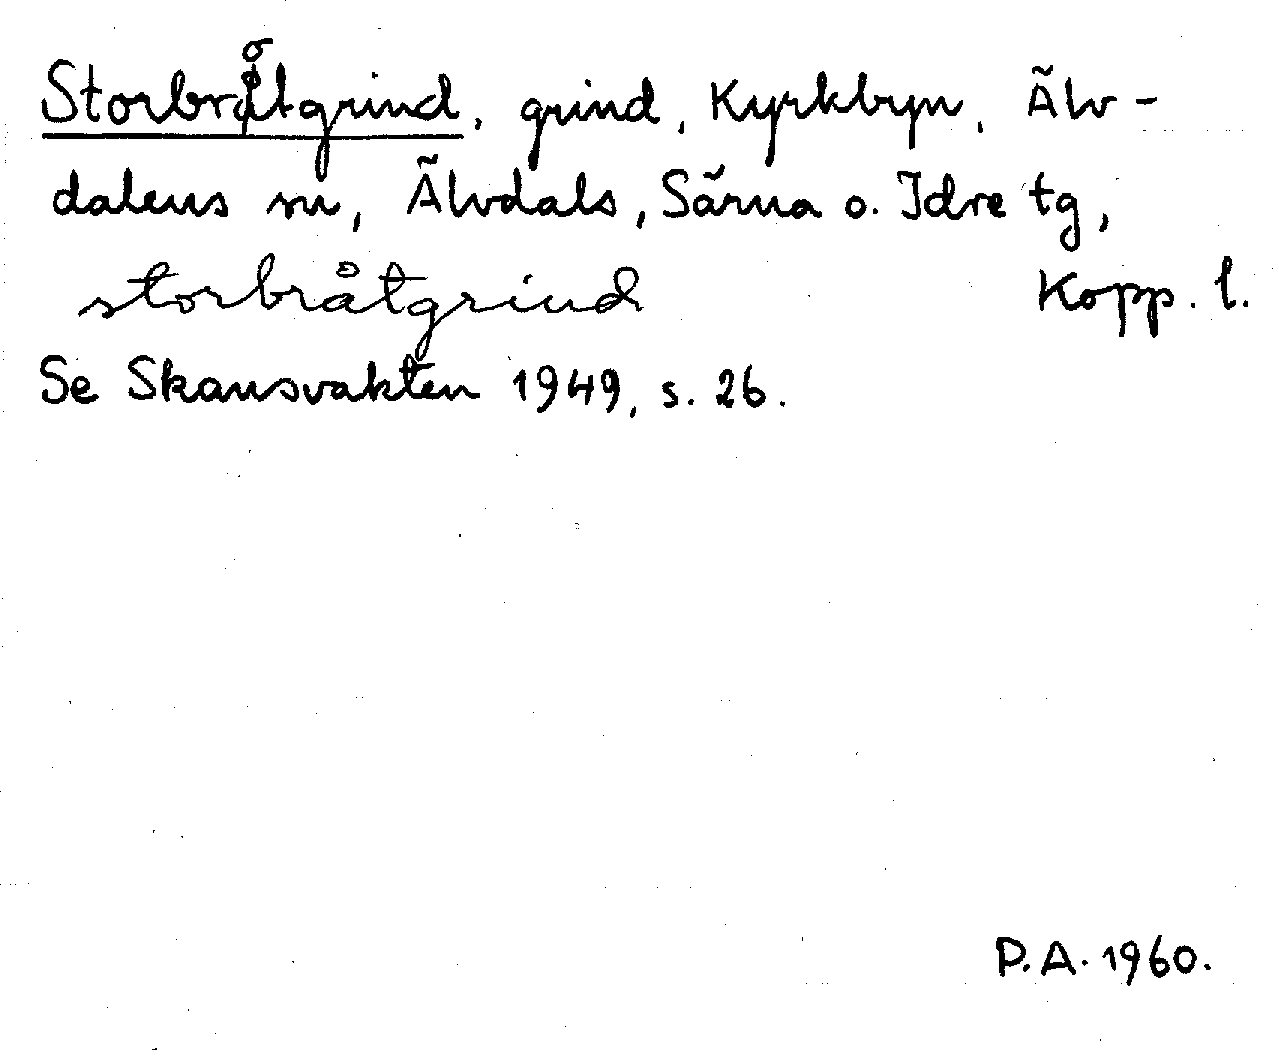 Storbråtgrind, grind, Kyrkbyn, Älv-
dalens sn, Älvdals, Särna o. Idre tg,
storbråtgrind Kopp. l.
Se Skansvakten 1949, s. 26.
P.A. 1960.